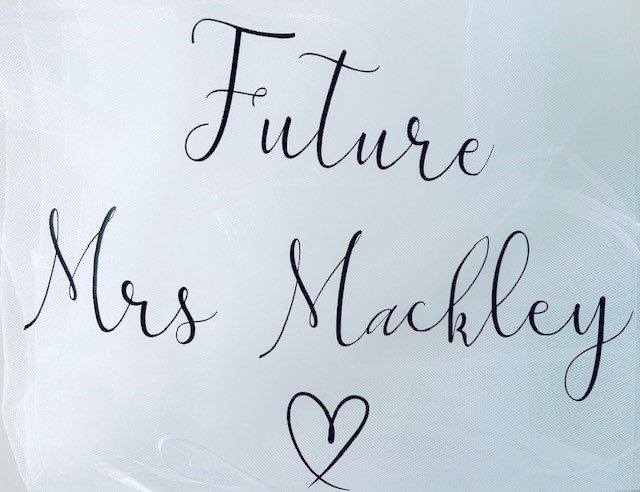 Future
Mrs Mackley